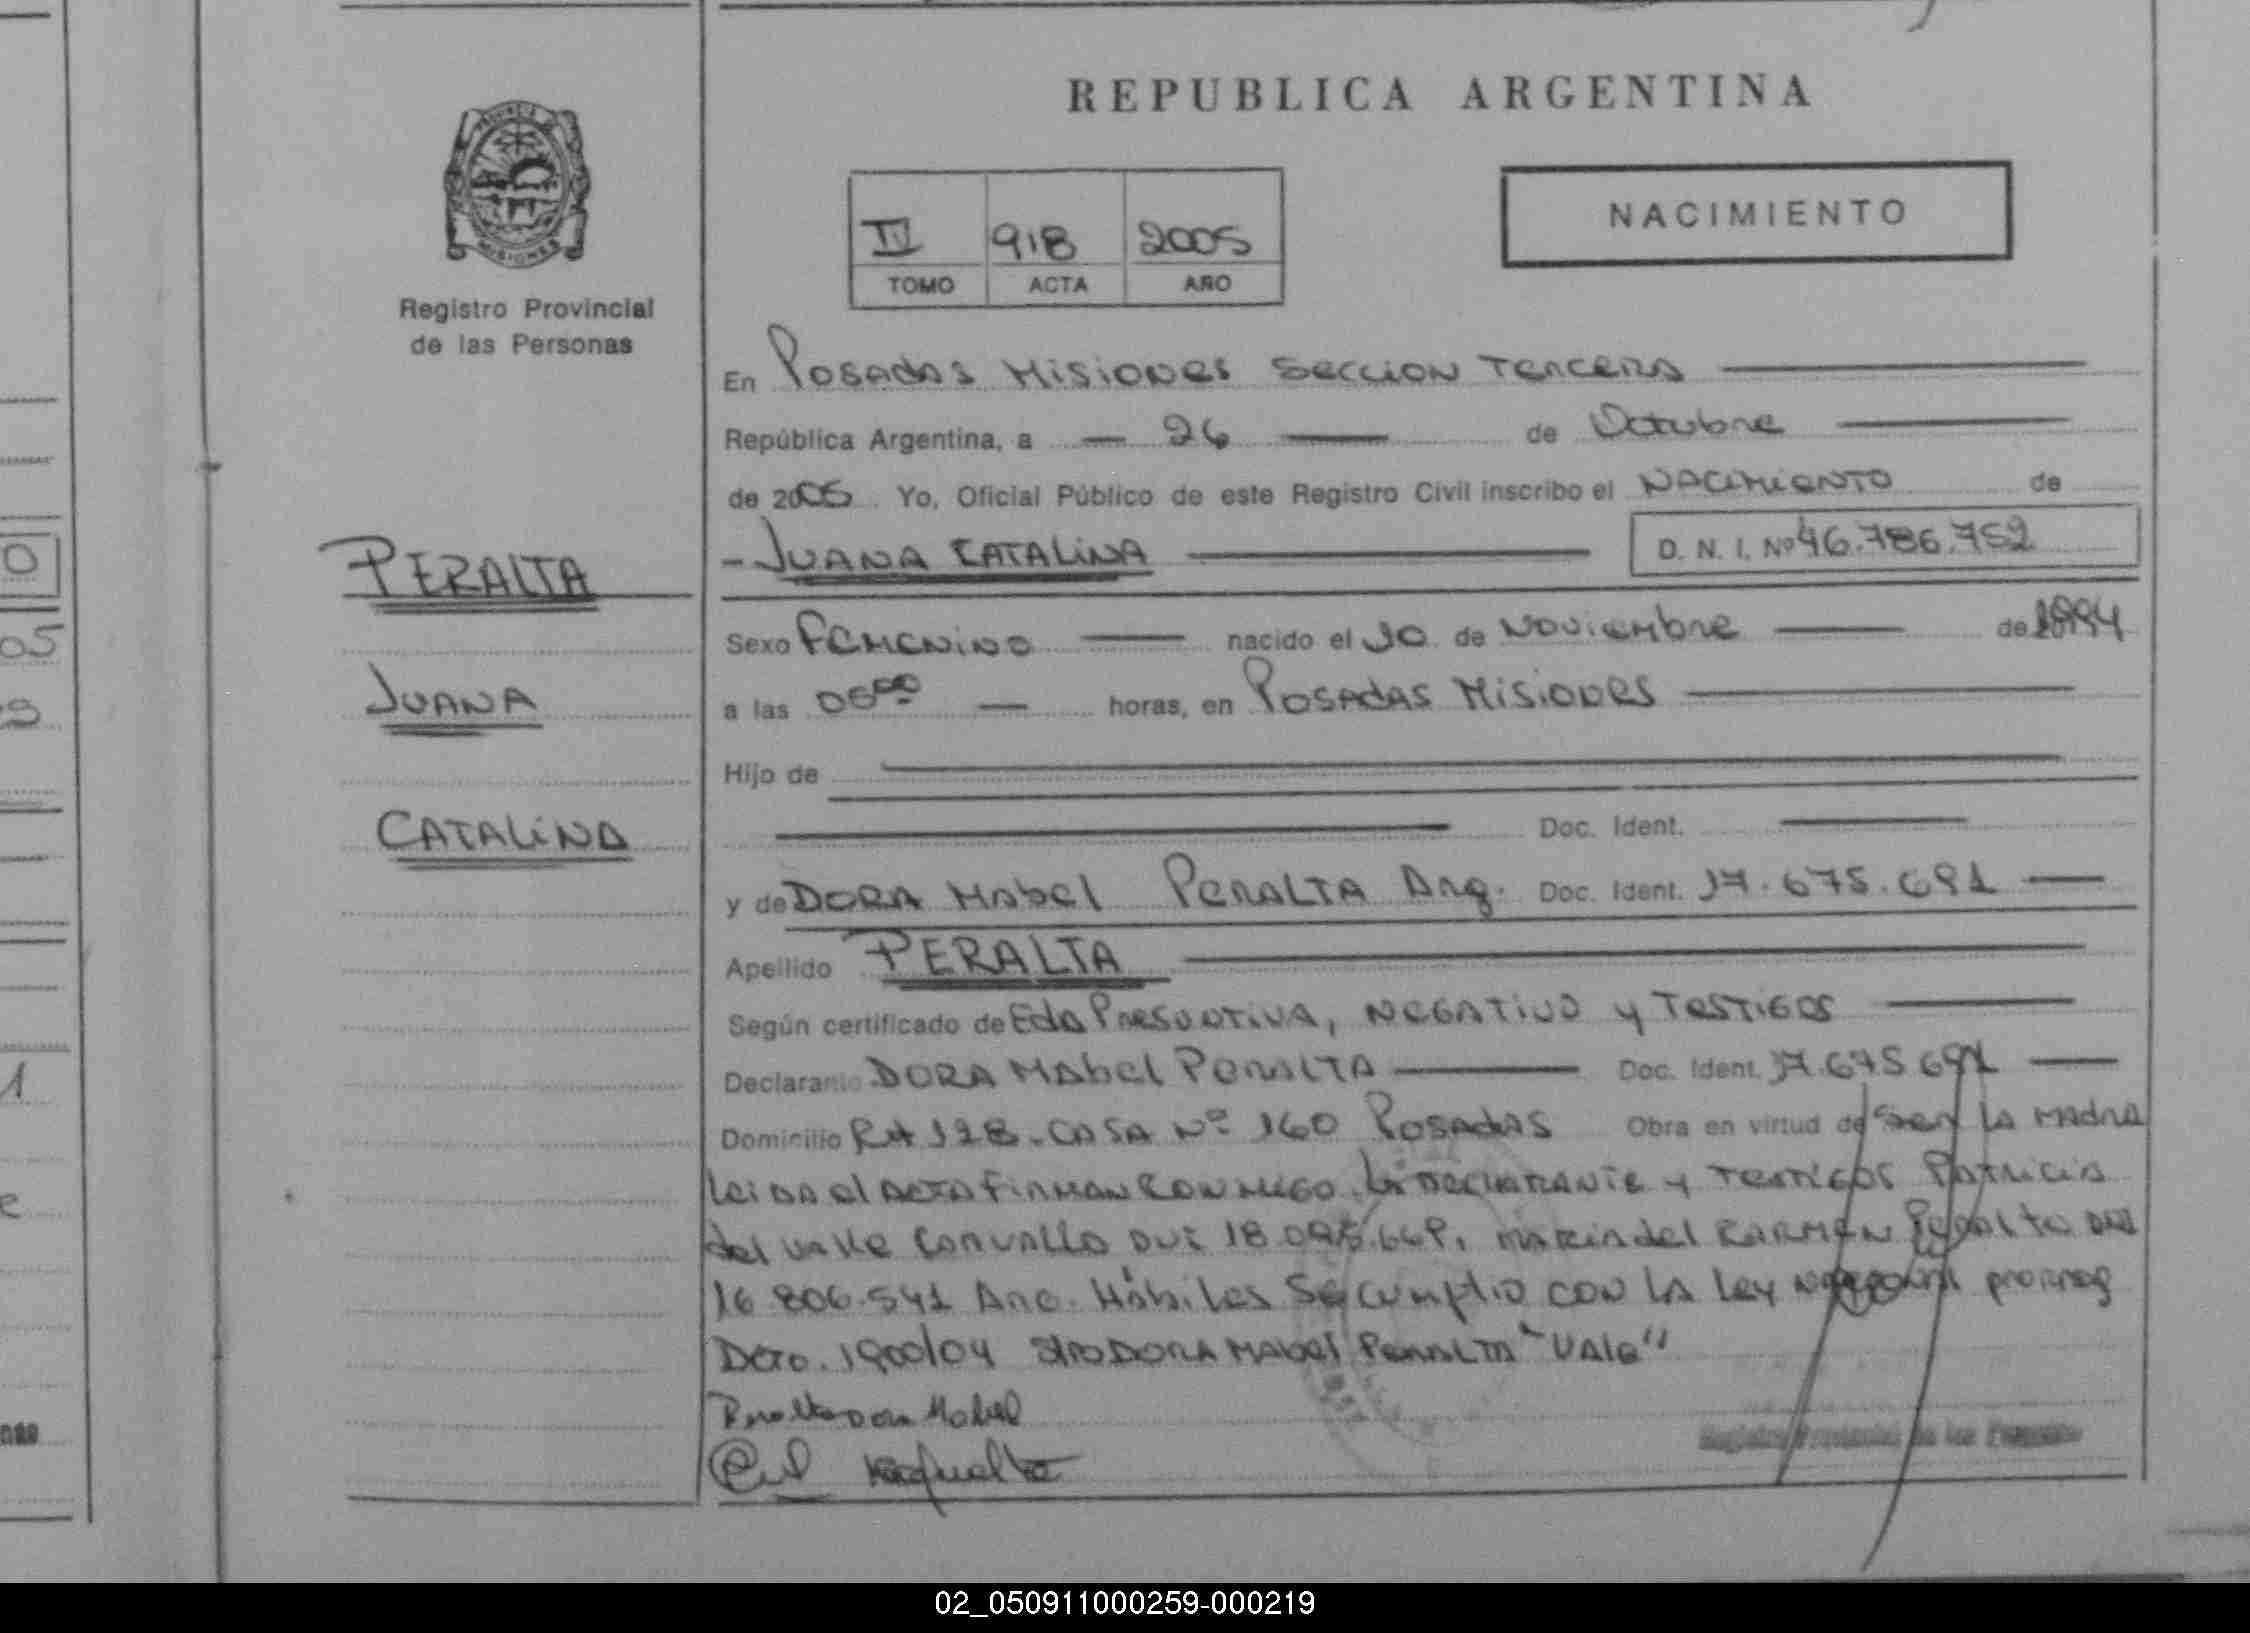 REPUBLICA ARGENTINA
NACIMIENTO
918 2005
TOMO ACTA AÑO
PROVINCIA DE
MISIONES
Registro Provincial
de las Personas
En Posadas Misiones Seccion Tercera
República Argentina, a 26 de Octubre
de 2005 Yo, Oficial Público de este Registro Civil inscribo el NACIMIENTO de
JUANA CATALINA D. N. I. Nº 46.786.752
PERALTA
Sexo Femenino nacido el 30 de Noviembre de 1994
JUANA
a las 05 00 horas, en Posadas Misiones
Hijo de
CATALINA
Doc. Ident.
y de DORA Mabel PERALTA Arg. Doc. Ident. 17.675.691
Apellido PERALTA
Según certificado de Eda Presuntiva, NEGATIVO y TESTIGOS
Declarante DORA Mabel PERALTA Doc. Ident. 17.675 691
Domicilio Rta 128. CASA Nº 160 Posadas Obra en virtud de Ser LA MADRE
Leida el ACTA FIRMAN CONMIGO La DECLARANTE y TESTIGOS Patricia
del Valle Carvallo DNI 18 Maria del Carmen Peralta DNI
16 806.541 Arg. Hábiles Se cumplio con LA Ley prorrog
Dcto. 1900/04 DORA MABEL PERALTA "VALE"
Peralta Dora Mabel
Registro Provincial de las Personas
05
1
02_050911000259-000219